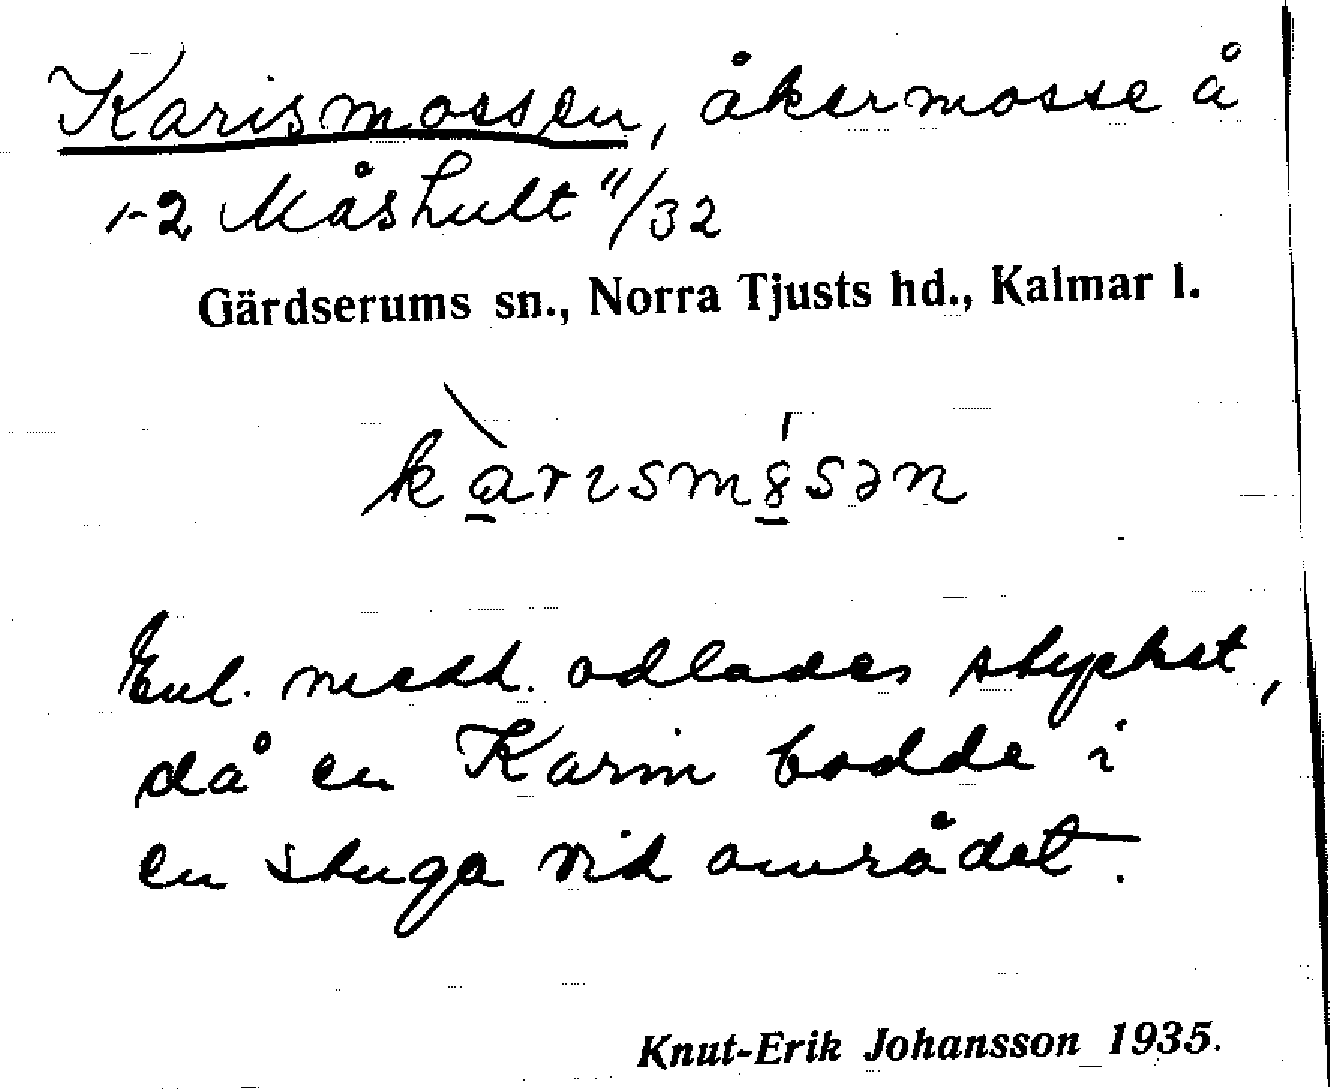 Karismossen, åkermosse å
1-2 Måshult 11/32
Gärdserums sn., Norra Tjusts hd., Kalmar l.
kàrısmȣ́sən
Enl. medd. odlades stycket,
då en Karin bodde i
en stuga vid området.
Knut-Erik Johansson 1935.